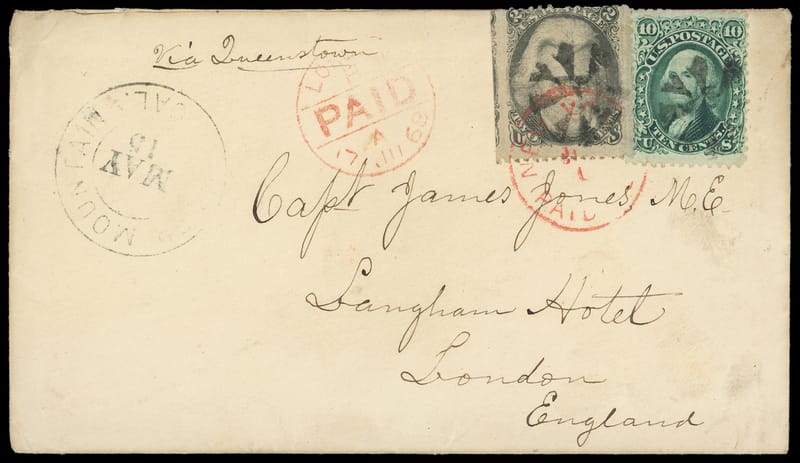 Via Queenstown
PAID
17 JU 68
10 10
U.S. POSTAGE
TEN CENTS
U S
2
MOUNTAIN
CAL.
MAY
Capt James Jones, M.E.
PAID
Langham Hotel
London
England